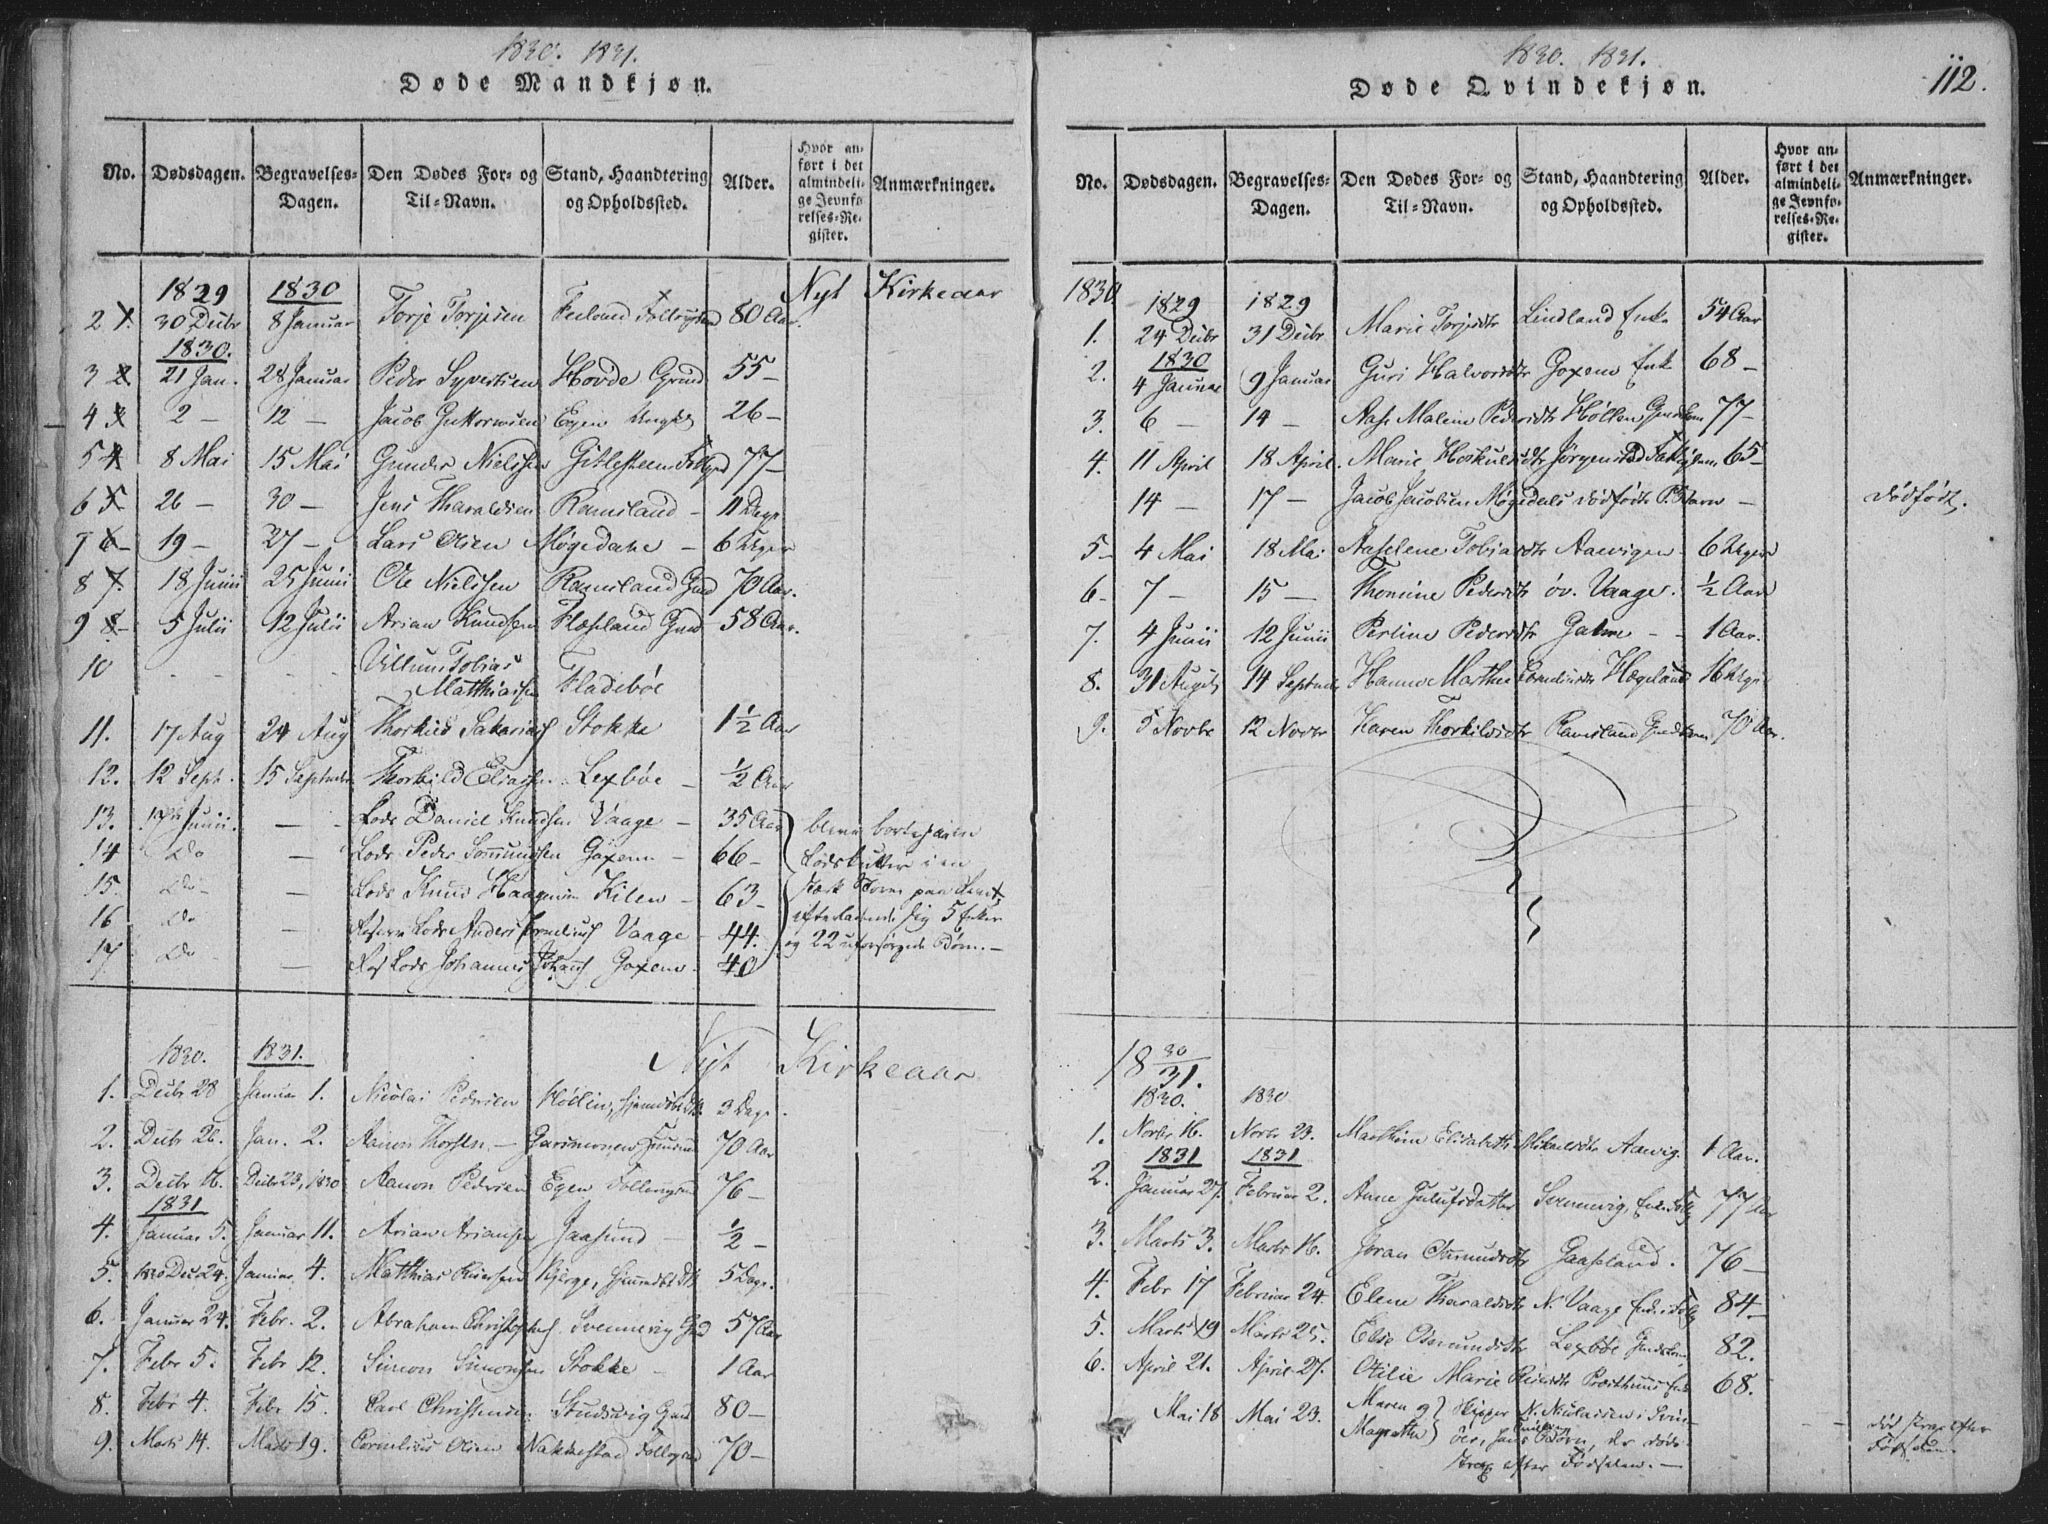 1830. 1831.
Døde Mandkjøn.
No. Dødsdagen. Begravelses-Dagen. Den Dødes For- og Til-Navn. Stand, Haandtering og Opholdssted. Alder. Hvor anført i det almindelige Jevnførelses-Register. Anmærkninger.
Nyt Kirkeaar
1829 1830
2 1. 30 Decbr 8 Januar Torje Torjesen 80 Aar.
1830.
3 2 21 Jan. 28 Januar Peder Syvertsen Hovde Gmd 55 -
4 3 2 - 12 - Jacob Guttormsen Egen 26 -
5 4 8 Mai 15 Mai Gunder Nielsen Gitlesteen 77 -
6 5 26 - 30 - Jens Tharaldsen Ramsland - 11 Dage
7 6 - 19 - 27 - Lars Olsen Møgedale - 6 Uger
8 7. 18 Junii 25 Junii Ole Nielssen Ramsland Gmd 70 Aar.
9 8 - 5 Julii 12 Julii Arian Knudsen Flaseland Gmd 58 Aar.
10 - - Villum Tobias
Matthiassen Fladebøe
11. 17 Aug 24 Aug Thorkild Sakarias Stokke 1½ Aar
12. 12 Sept. 15 Septembr Thorkild Eliassen Lexbøe - ½ Aar
13. Junii. - - Lods Daniel Knudsen Vaage - 35 Aar } bleve borte paa en
14 Do - Lods Peder Goxem - 66 - Lodskutter i en
15. Do - - Lods Knud Kilen - 63 - stærk Storm paa
16 Do - Lods Anders Cornelius Vaage - 44. efterladende sig 5 Enker
17 Do - - Lods Johannes Goxem - 40 og 22 uforsørgede Børn. -
Nyt Kirkeaar
1830. 1831.
1. Decbr 28 Januar 1. Nicolai Pedersen Høllen, 3 Dage.
2. Decbr 26. Jan. 2. Aanon Thorsen - 70 Aar
3. Decbr 16. Decbr 23, 1830 Aanon Pedersen Egen 76 -
1831
4. Januar 5. Januar 11. Arian Ariansen Jaasund - ½ -
5. 1830 Dec 24. Januar 4. Matthias Reiersen Bjerge, 5 Dage.
6. Januar 24. Febr. 2. Abraham Christophers. Svennevig Gmd 57 Aar
7. Febr 5. Febr 12. Simon Simonsen Stokke - 1 Aar
8. Febr 4. Febr 15. Carl Christensen Studsvig Gmd 80 -
9. Marts 14. Marts 19. Cornelius Olsen Nakkestad 70 -
1830. 1831.
112.
Døde Qvindekjøn.
No. Dødsdagen. Begravelses-Dagen. Den Dødes For- og Til-Navn. Stand, Haandtering og Opholdssted. Alder. Hvor anført i det almindelige Jevnførelses-Register. Anmærkninger.
1830
1829 1829
1. 24 Decbr 31 Decbr Marie Torjesdtr Lindland Enke 54 Aar
1830
2. 4 Januar 9 Januar Guri Halvorsdtr Goxem Enk 68 -
3. 6 - 14 - Aase Malene Pedersdtr Høllen 77 -
4. 11 April 18 April. Marie Hoskuldsdtr Jørgenstad 65 -
14 - 17 - Jacob Jacobsen Møgedals dødfødt P. Barn - dødfødt.
5 - 4 Mai 18 Mai Aaselene Tobiasdtr Aavigen - 6 Uger
6 - 7 - 15 - Thomine Pedersdtr öv. Vaage. ½ Aar
7. 4 Junii 12 Junii Perline Pedersdtr - - 1 Aar.
8. 31 Augst 14 Septembr Hanne Marthea Corneliusdtr Hægeland 16 Uger
9. 5 Novbr 12 Novbr Karen Thorkildsdtr Ramsland 70 Aar.
18 30/31.
1830. 1830
1. Novbr 16. Novbr 23. Marthine Elisabeth Mikalsdtr Aavig. 1 Aar.
1831 1831
2. Januar 27. Februar 2. Anne Gulufsdatter Svennevig, 77 Aar
3. Marts 3. Marts 16. Joran Osmundsdtr Gaaseland. 76 -
4. Febr 17 Februar 24. Elene Tharaldsdtr N. Vaage 84 -
5. Marts 19 Marts 25. Else Osmundsdtr Lexbøe 82.
6. April 21. April 27. Otilie Marie Reiersdtr 68.
Mai 18 Mai 23. Maren og Magrethe } Skipper N. Nicolaisen i Svinöer, hans Tvilling Börn, de döde strax efter Födselen. - - - död strax efter Födselen.